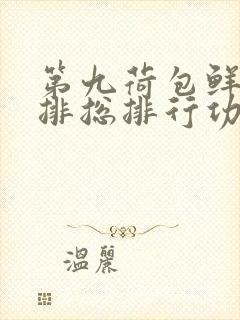 第九荷包鲜
排挖排行功
温丽